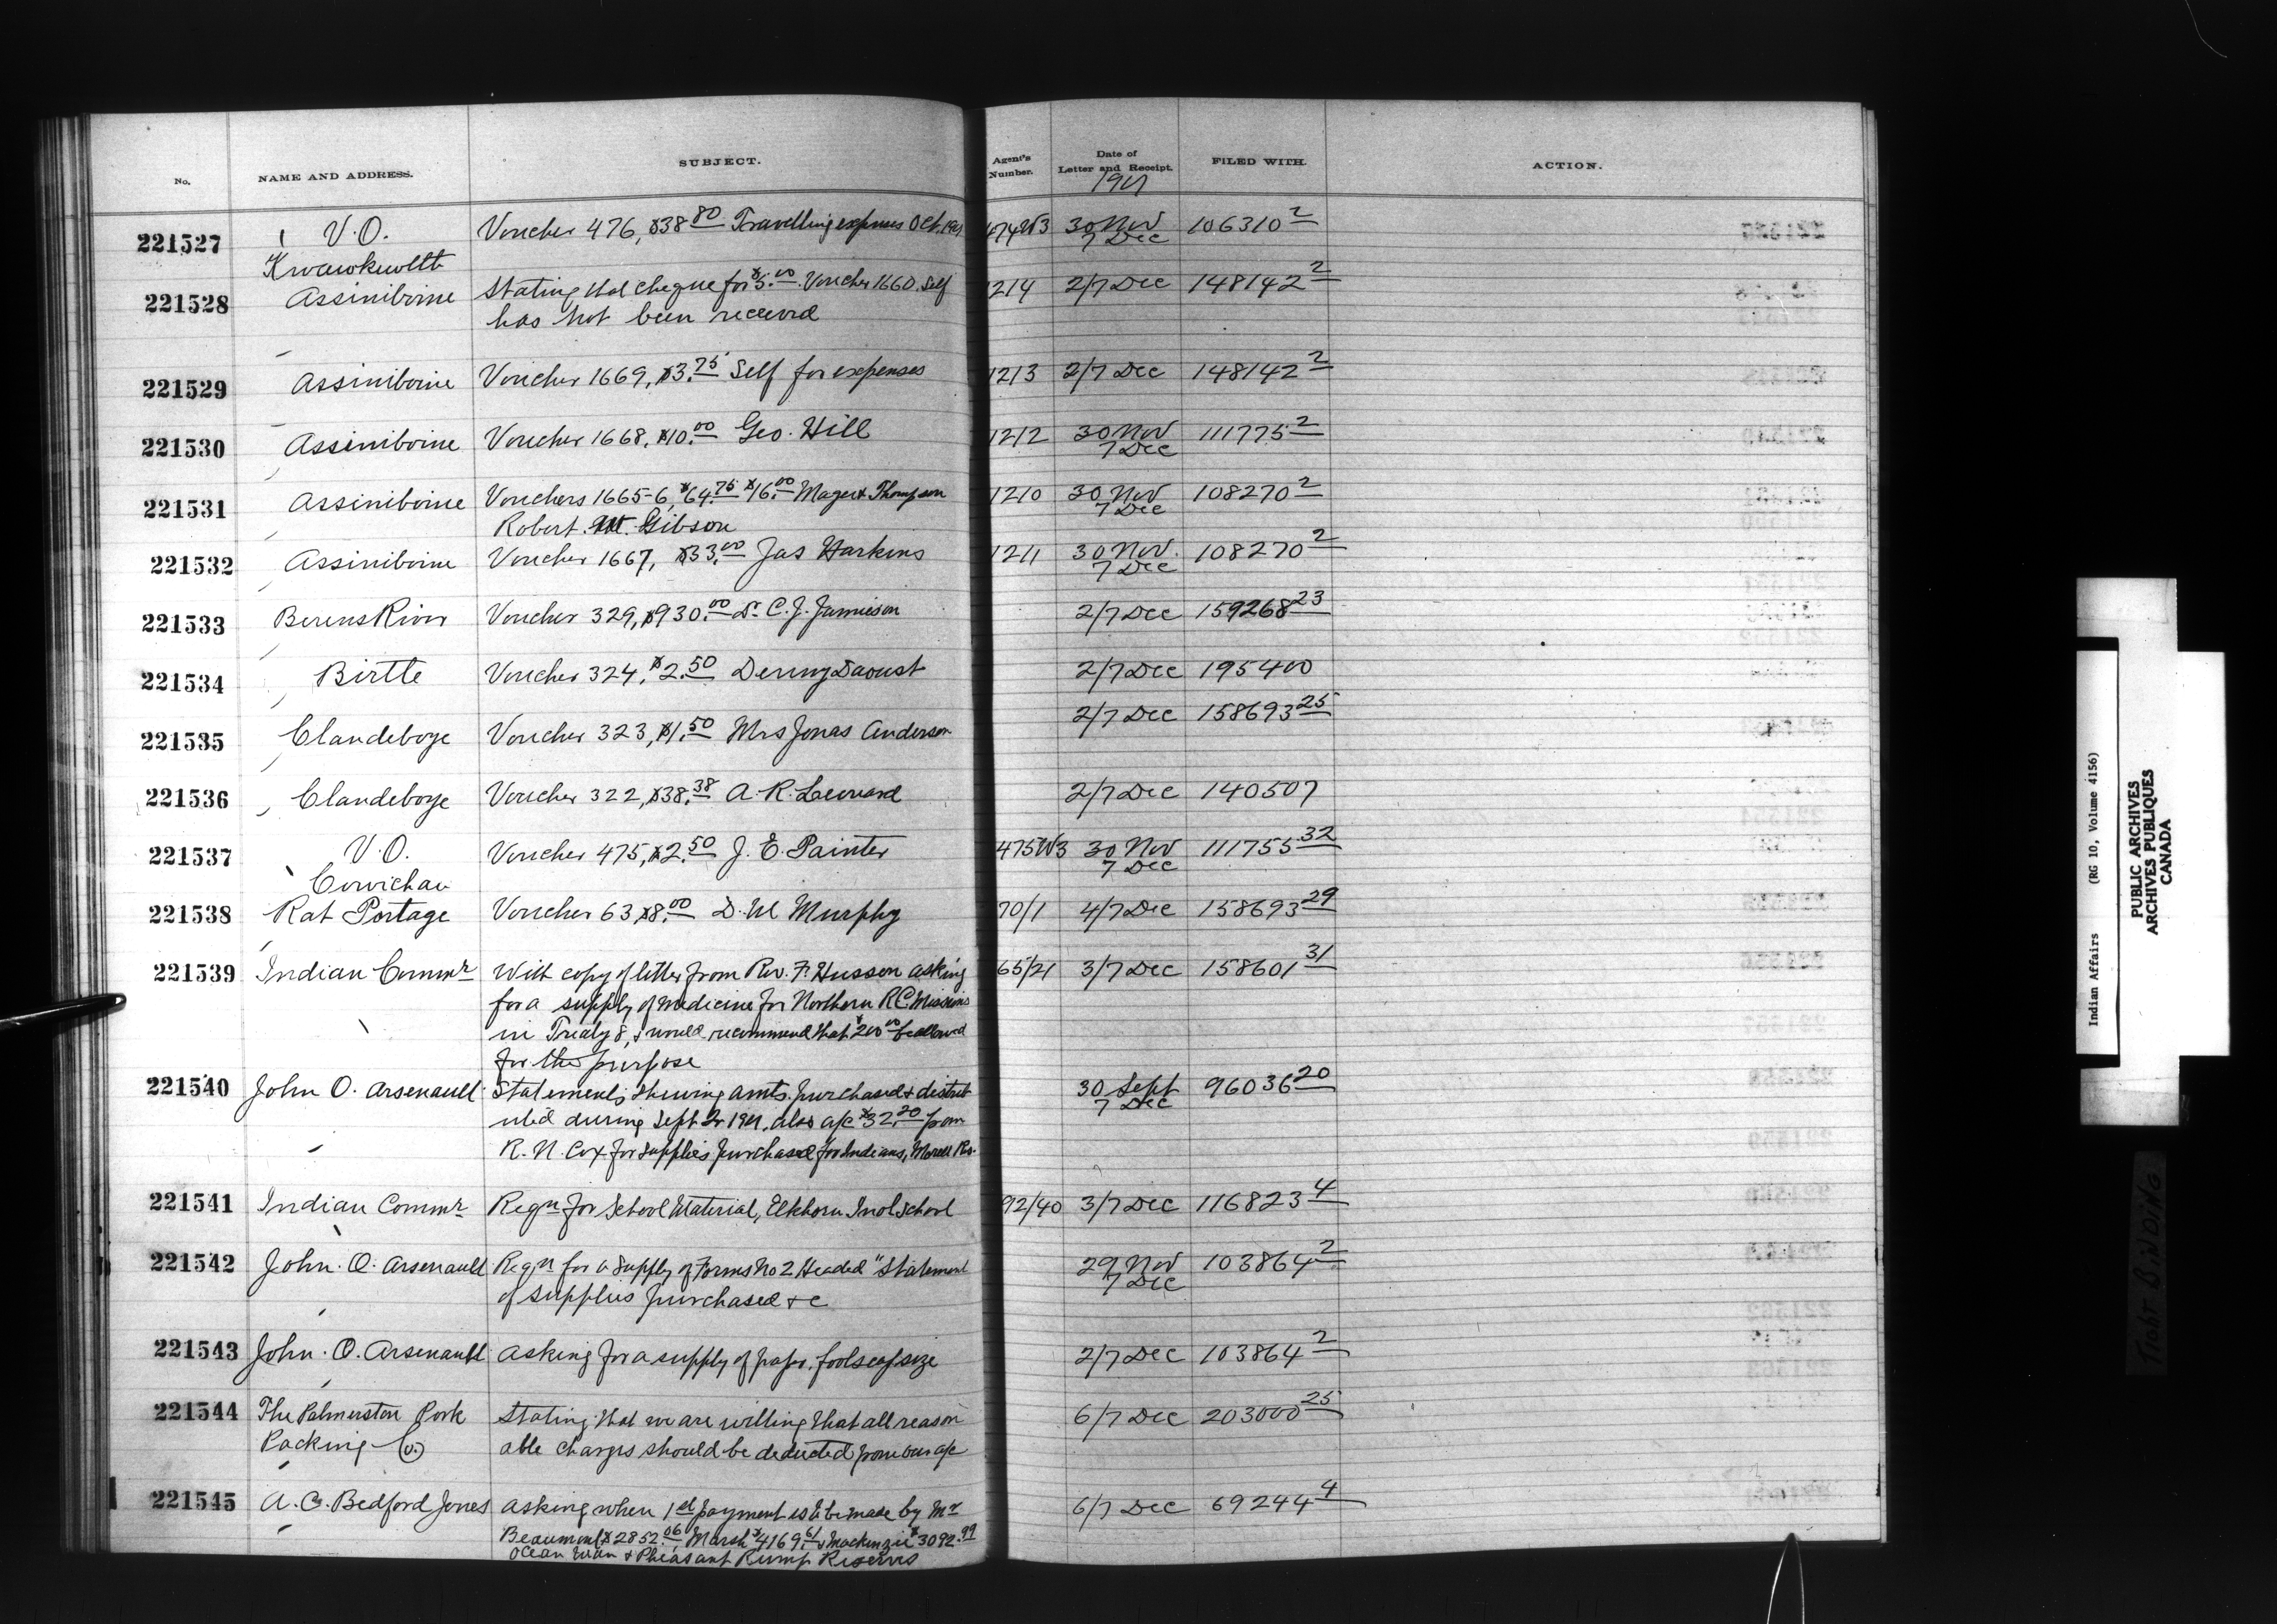 No. NAME AND ADDRESS. SUBJECT. Agent's Number. Date of Letter and Receipt. FILED WITH. ACTION.
1901
221527 V.O. Voucher 476, $38.80 Travelling expenses Oct. 1901 474W3 30 Nov 106310 2
Kwawkewlth 7 Dec
221528 Assiniboine Stating that cheque for $5.00 Voucher 1660. Self 1214 2/7 Dec 148142 2
has not been received
221529 Assiniboine Voucher 1669, $3.75 Self for expenses 1213 2/7 Dec 148142 2
221530 Assiniboine Voucher 1668, $10.00 Geo. Hill 1212 30 Nov 111775 2
7 Dec
221531 Assiniboine Vouchers 1665-6, $64.75 $16.00 Thompson 1210 30 Nov 108270 2
Robert Gibson 7 Dec
221532 Assiniboine Voucher 1667, $33.00 Jas Harkins 1211 30 Nov. 108270 2
7 Dec
221533 Berens River Voucher 329, $930.00 Dr C. J. Jamieson 2/7 Dec 159268 23
221534 Birtle Voucher 324, $2.50 Daoust 2/7 Dec 195400
221535 Clandeboye Voucher 323, $1.50 Mrs Jonas Anderson 2/7 Dec 158693 25
221536 Clandeboye Voucher 322, $38.38 A. R. Leonard 2/7 Dec 140507
221537 V.O. Voucher 475, $2.50 J. E. Painter 475W3 30 Nov 111755 32
Cowichan 7 Dec
221538 Rat Portage Voucher 63, $8.00 D. M Murphy 70/1 4/7 Dec 158693 29
221539 Indian Commr With copy of letter from Rev. F. Husson asking 65/21 3/7 Dec 158601 31
for a supply of medicine for Northern R.C. Missions
in Treaty 8, & would recommend that $200.00 be allowed
for the purpose
221540 John O. Arsenault Statements, Shewing amts. purchased & distrib 30 Sept 96036 20
uted during Sept Qr 1901, also a/c $32.20 from 7 Dec
R. N. Cox for supplies purchased for Indians, Morell Rs.
221541 Indian Commr Reqn for School Material, Elkhorn Indl School 92/40 3/7 Dec 116823 4
221542 John. O. Arsenault Reqn for a supply of Forms No 2 Headed "Statement 29 Nov 103864 2
of supplies purchased &c 7 Dec
221543 John. O. Arsenault Asking for a supply of paper, foolscap size 2/7 Dec 103864 2
221544 The Palmerston Pork Stating that we are willing that all reason 6/7 Dec 203000 25
Packing Co. able charges should be deducted from our a/c
221545 A. C. Bedford Jones Asking when 1st payment is to be made by Mr 6/7 Dec 69244 4
Beaumont $2852.06, Marsh $4169.61 & Mackenzie $3092.99
Ocean Man & Pheasant Rump Reserves
Indian Affairs (RG 10, Volume 4156)
PUBLIC ARCHIVES
ARCHIVES PUBLIQUES
CANADA
TIGHT BINDING